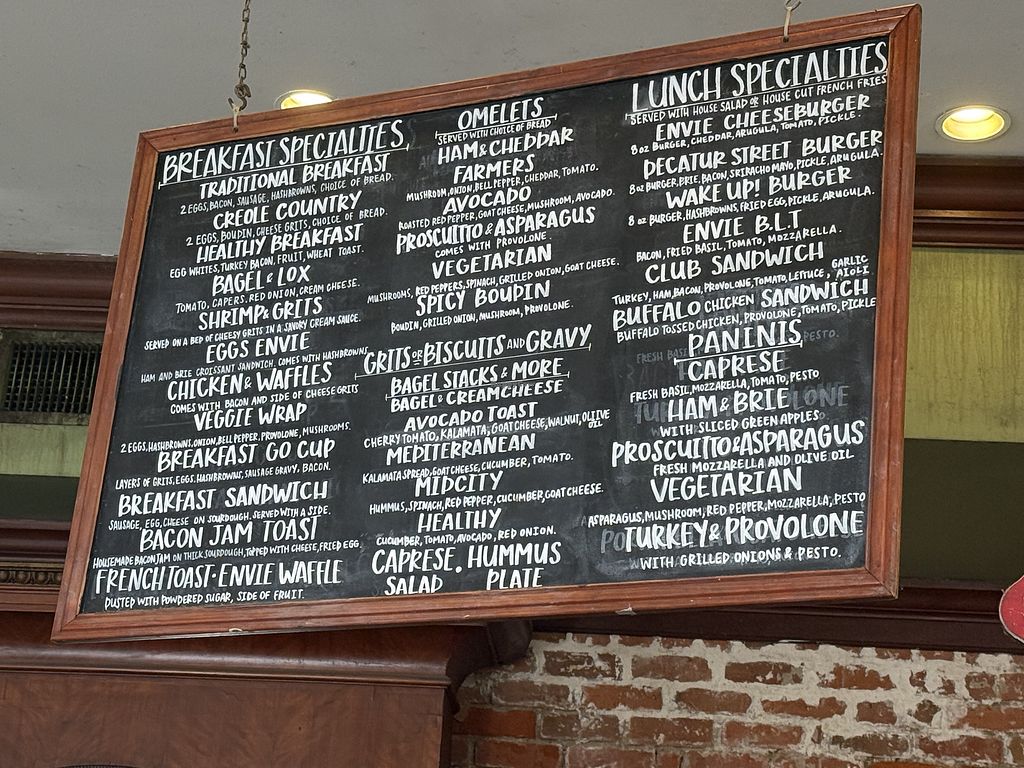 BREAKFAST SPECIALTIES
TRADITIONAL BREAKFAST
2 EGGS, BACON, SAUSAGE, HASHBROWNS, CHOICE OF BREAD.
CREOLE COUNTRY
2 EGGS, BOUDIN, CHEESE GRITS, CHOICE OF BREAD.
HEALTHY BREAKFAST
EGG WHITES, TURKEY BACON, FRUIT, WHEAT TOAST.
BAGEL & LOX
TOMATO, CAPERS, RED ONION, CREAM CHEESE.
SHRIMP & GRITS
SERVED ON A BED OF CHEESY GRITS IN A SAVORY CREAM SAUCE.
EGGS ENVIE
HAM AND BRIE CROISSANT SANDWICH. COMES WITH HASHBROWNS
CHICKEN & WAFFLES
COMES WITH BACON AND SIDE OF CHEESE GRITS
VEGGIE WRAP
2 EGGS, HASHBROWNS, ONION, BELL PEPPER, PROVOLONE, MUSHROOMS.
BREAKFAST GO CUP
LAYERS OF GRITS, EGGS, HASHBROWNS, SAUSAGE GRAVY, BACON.
BREAKFAST SANDWICH
SAUSAGE, EGG, CHEESE ON SOURDOUGH. SERVED WITH A SIDE.
BACON JAM TOAST
HOUSEMADE BACON JAM ON THICK SOURDOUGH, TOPPED WITH CHEESE, FRIED EGG
FRENCH TOAST · ENVIE WAFFLE
DUSTED WITH POWDERED SUGAR, SIDE OF FRUIT.
OMELETS
SERVED WITH CHOICE OF BREAD
HAM & CHEDDAR
FARMERS
MUSHROOM, ONION, BELL PEPPER, CHEDDAR, TOMATO.
AVOCADO
ROASTED RED PEPPER, GOAT CHEESE, MUSHROOM, AVOCADO.
PROSCUITTO & ASPARAGUS
COMES WITH PROVOLONE
VEGETARIAN
MUSHROOMS, RED PEPPERS, SPINACH, GRILLED ONION, GOAT CHEESE.
SPICY BOUDIN
BOUDIN, GRILLED ONION, MUSHROOM, PROVOLONE.
GRITS OR BISCUITS AND GRAVY
BAGEL STACKS & MORE
BAGEL & CREAMCHEESE
AVOCADO TOAST
CHERRY TOMATO, KALAMATA, GOAT CHEESE, WALNUT, OLIVE OIL
MEDITERRANEAN
KALAMATA SPREAD, GOAT CHEESE, CUCUMBER, TOMATO.
MIDCITY
HUMMUS, SPINACH, RED PEPPER, CUCUMBER, GOAT CHEESE.
HEALTHY
CUCUMBER, TOMATO, AVOCADO, RED ONION.
CAPRESE . HUMMUS
SALAD PLATE
LUNCH SPECIALTIES
SERVED WITH HOUSE SALAD OR HOUSE CUT FRENCH FRIES
ENVIE CHEESEBURGER
8 OZ BURGER, CHEDDAR, ARUGULA, TOMATO, PICKLE.
DECATUR STREET BURGER
8 OZ BURGER, BRIE, BACON, SRIRACHO MAYO, PICKLE, ARUGULA.
WAKE UP! BURGER
8 OZ BURGER, HASHBROWNS, FRIED EGG, PICKLE, ARUGULA.
ENVIE B.L.T
BACON, FRIED BASIL, TOMATO, MOZZARELLA.
CLUB SANDWICH
TURKEY, HAM, BACON, PROVOLONE, TOMATO, LETTUCE, GARLIC AIOLI
BUFFALO CHICKEN SANDWICH
BUFFALO TOSSED CHICKEN, PROVOLONE, TOMATO, PICKLE
PANINIS
CAPRESE
FRESH BASIL, MOZZARELLA, TOMATO, PESTO
HAM & BRIE
WITH SLICED GREEN APPLES
PROSCUITTO & ASPARAGUS
FRESH MOZZARELLA AND OLIVE OIL
VEGETARIAN
ASPARAGUS, MUSHROOM, RED PEPPER, MOZZARELLA, PESTO
TURKEY & PROVOLONE
WITH GRILLED ONIONS & PESTO.